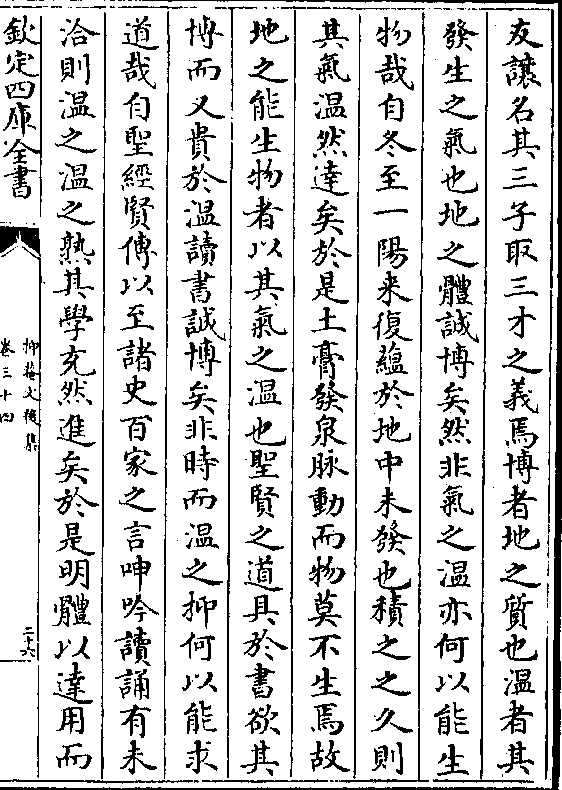 友讓名其三子取三才之義焉博者地之質也溫者其
發生之氣也地之體誠博矣然非氣之溫亦何以能生
物哉自冬至一陽来復蘊於地中未發也積之之久則
其氣溫然達矣於是土膏發泉脉動而物莫不生焉故
地之能生物者以其氣之溫也聖賢之道具於書欲其
博而又貴於溫讀書誠博矣非時而溫之抑何以能求
道哉自聖經賢傳以至諸史百家之言呻吟讀誦有未
洽則溫之溫之熟其學充然進矣於是明體以達用而
欽定四庫全書
抑菴文後集
卷三十四
二十六